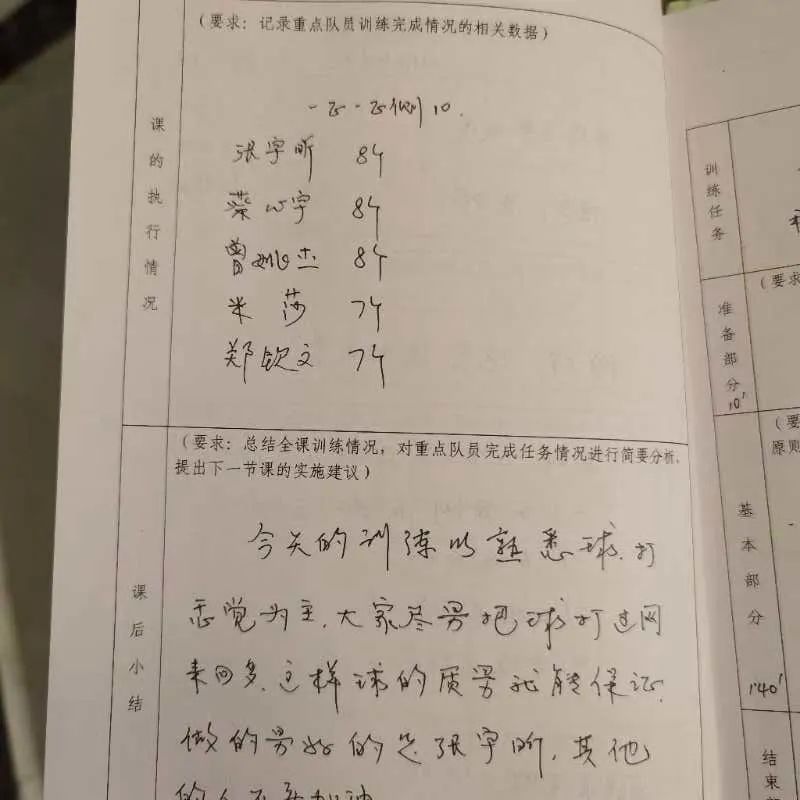 (要求：记录重点队员训练完成情况的相关数据)
课的执行情况
一正一正侧10.
张宇昕 84
蔡心宇 84
曾姚杰 84
米莎 74
郑钦文 74
(要求：总结全课训练情况，对重点队员完成任务情况进行简要分析，
提出下一节课的实施建议)
课后小结
今天的训练以熟悉球.打
感觉为主.大家尽量把球打过网
来回多.这样球的质量就能保证.
做的最好的是张宇昕.其他
的人
训练任务
(要求
准备部分
10'
(要
原则
基本部分
140'
结束